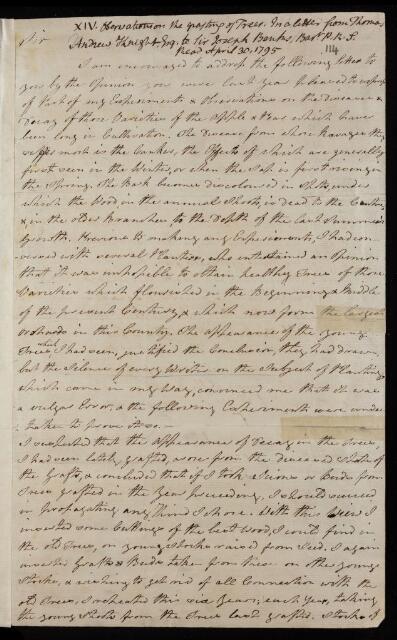 XIV. Observations on the grafting of Trees. In a letter from Thomas
Andrew Knight Esq. to Sir Joseph Banks, Bart. P.R.S.
Read April 30, 1795
114
Sir
I am encouraged to address the following letter to
you by the Opinion you were last Year pleased to express
of Part of my Experiments & Observations on the Diseases &
Decay of those Varieties of the Apple & Pear which have
been long in Cultivation. The Disease from whose ravages they
suffer most is the Canker, the Effects of which are generally
first seen in the Winter, or when the Sap is first rising in
the Spring. The Bark becomes discoloured in Spots, under
which the Wood, in the annual Shoots, is dead to the Centre,
& in the older Branches, to the Depth of the last Summer's
Growth. Previous to making any Experiments, I had con
versed with several Planters, who entertained an Opinion
that it was impossible to obtain healthy Trees of those
Varieties which flourished in the Beginning & Middle
of the present Century, & which now form the largest
orchards in this Country. The appearance of the young
Trees, which I had seen, justified the Conclusion they had drawn,
but the Silence of every Writer on the Subject of Planting,
which came in my Way, convinced me that it was
a vulgar Error, & the following Experiments were under
taken to prove it so.
I suspected that the Appearance of Decay in the Trees
I had seen lately grafted, arose from the diseased State of
the Grafts, & concluded that if I took Scions or Buds from
Trees grafted in the Year preceding, I should succeed
in Propagating any Kind I chose. With this View I
inserted some Cuttings of the best Wood, I could find in
the old Trees, on young Stocks raised from Seed. I again
inserted Grafts & Buds taken from these on other young
Stocks, & wishing to get rid of all Connection with the
old Trees, I repeated this six Years; each Year, taking
the young Shoots from the Trees last grafted. Stocks of